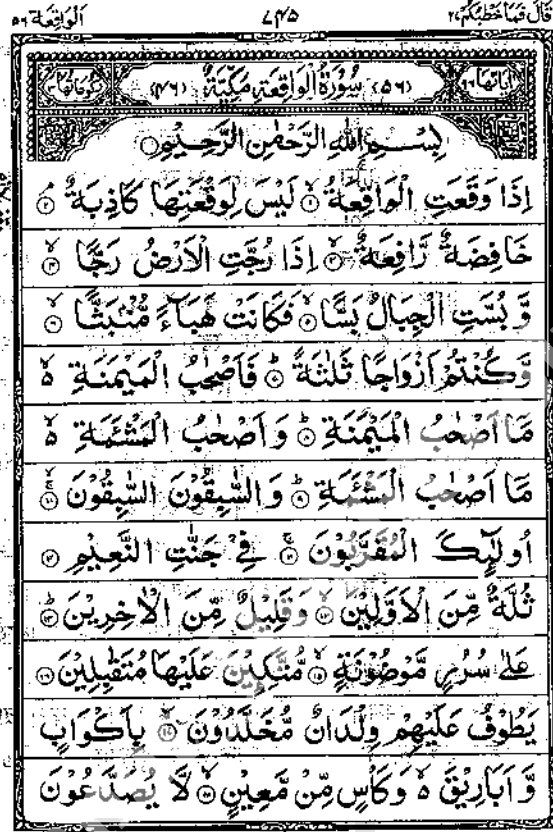 قَالَ فَمَا خَطْبُكُمْ ٢٧ ٧٤٥ اَلْوَاقِعَة ٥٦
اٰيَاتُهَا ٩٦ (٥٦) سُوْرَةُ الْوَاقِعَةِ مَكِّيَّةٌ (٤٦) رُكُوْعَاتُهَا ٣
بِسْمِ اللهِ الرَّحْمٰنِ الرَّحِيْمِ
اِذَا وَقَعَتِ الْوَاقِعَةُ ۙ‏﴿۱﴾ لَيْسَ لِوَقْعَتِهَا كَاذِبَةٌ ۘ‏﴿۲﴾
خَافِضَةٌ رَّافِعَةٌ ۙ‏﴿۳﴾ اِذَا رُجَّتِ الْاَرْضُ رَجًّا ۙ‏﴿۴﴾
وَّ بُسَّتِ الْجِبَالُ بَسًّا ۙ‏﴿۵﴾ فَكَانَتْ هَبَآءً مُّنْۢبَثًّا ۙ‏﴿۶﴾
وَّكُنْتُمْ اَزْوَاجًا ثَلٰثَةً ؕ‏﴿۷﴾ فَاَصْحٰبُ الْمَيْمَنَةِ ۙ۬
مَاۤ اَصْحٰبُ الْمَيْمَنَةِ ؕ‏﴿۸﴾ وَ اَصْحٰبُ الْمَشْـَٔمَةِ ۙ۬
مَاۤ اَصْحٰبُ الْمَشْـَٔمَةِ ؕ‏﴿۹﴾ وَ السّٰبِقُوْنَ السّٰبِقُوْنَ ۚۙ‏﴿۱۰﴾
اُولٰٓئِكَ الْمُقَرَّبُوْنَ ۚ‏﴿۱۱﴾ فِيْ جَنّٰتِ النَّعِيْمِ ‏﴿۱۲﴾
ثُلَّةٌ مِّنَ الْاَوَّلِيْنَ ۙ‏﴿۱۳﴾ وَقَلِيْلٌ مِّنَ الْاٰخِرِيْنَ ؕ‏﴿۱۴﴾
عَلٰى سُرُرٍ مَّوْضُوْنَةٍ ۙ‏﴿۱۵﴾ مُّتَّكِـِٕيْنَ عَلَيْهَا مُتَقٰبِلِيْنَ ‏﴿۱۶﴾
يَطُوْفُ عَلَيْهِمْ وِلْدَانٌ مُّخَلَّدُوْنَ ۙ‏﴿۱۷﴾ بِاَكْوَابٍ
وَّ اَبَارِيْقَ ۙ۬ وَكَاْسٍ مِّنْ مَّعِيْنٍ ۙ‏﴿۱۸﴾ لَّا يُصَدَّعُوْنَ